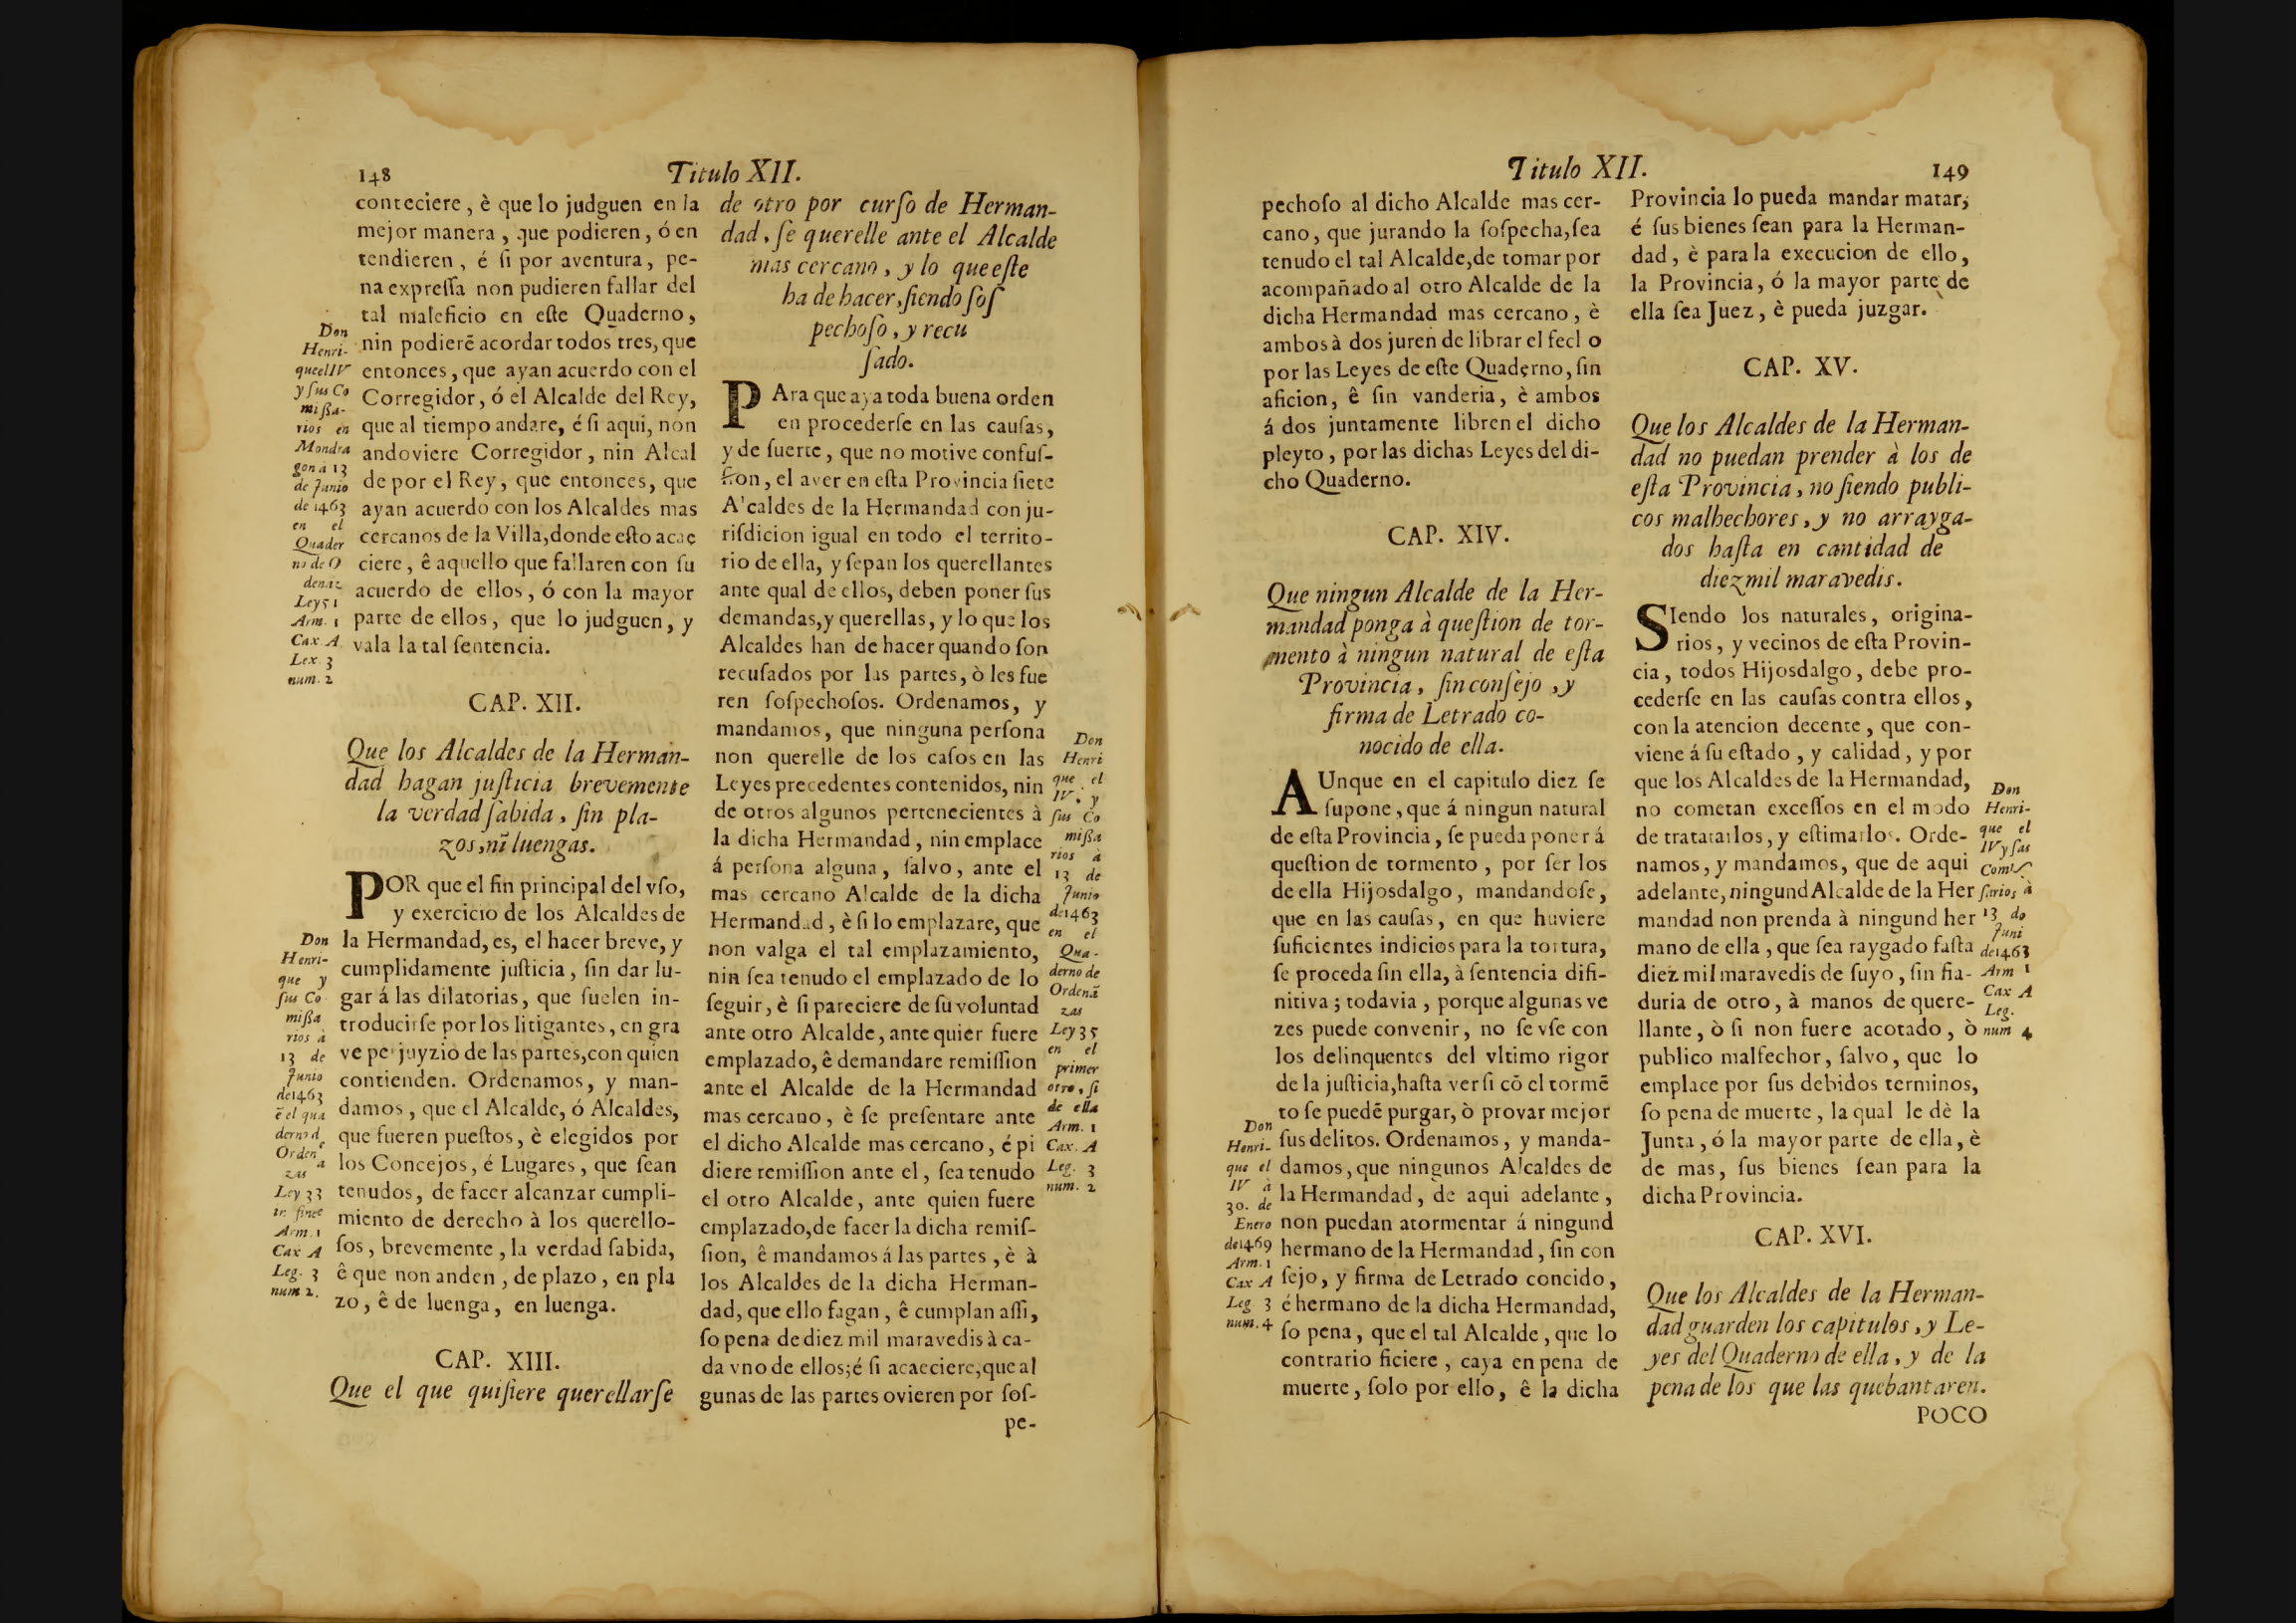 148
Titulo XII.
conteciere, è que lo judguen en la
mejor manera, que podieren, ó en
tendieren, é ſi por aventura, pe-
na expreſſa non pudieren fallar del
tal maleficio en eſte Quaderno,
nin podierē acordar todos tres, que
entonces, que ayan acuerdo con el
Corregidor, ó el Alcalde del Rey,
que al tiempo andare, é ſi aqui, non
andoviere Corregidor, nin Alcal
de por el Rey, que entonces, que
ayan acuerdo con los Alcaldes mas
cercanos de la Villa, donde eſto acae
ciere, ê aquello que fallaren con ſu
acuerdo de ellos, ó con la mayor
parte de ellos, que lo judguen, y
vala la tal ſentencia.
Don
Henri-
que el IV
y ſus Co
miſſa-
rios en
Mondra
gon à 13
de Junio
de 1463
en el
Quader
no de O
denāz
Ley 51
Arm. 1
Cax A
Lex. 3
num. 2
CAP. XII.
Que los Alcaldes de la Herman-
dad hagan juſticia brevemente
la verdad ſabida, ſin pla-
zos, nĩ luengas.
POR que el fin principal del vſo,
y exercicio de los Alcaldes de
la Hermandad, es, el hacer breve, y
cumplidamente juſticia, ſin dar lu-
gar á las dilatorias, que ſuelen in-
troducirſe por los litigantes, en gra
ve perjuyzio de las partes, con quien
contienden. Ordenamos, y man-
damos, que el Alcalde, ó Alcaldes,
que fueren pueſtos, è elegidos por
los Concejos, é Lugares, que ſean
tenudos, de facer alcanzar cumpli-
miento de derecho à los querello-
ſos, brevemente, la verdad ſabida,
ê que non anden, de plazo, en pla
zo, ê de luenga, en luenga.
Don
Henri-
que y
ſus Co
miſſa
rios à
13 de
Junio
de 1463
ē el qua
derno d
e
Orden
a
zas
Ley 33
in fine
Arm. 1
Cax A
Leg. 3
num 2.
CAP. XIII.
Que el que quiſiere querellarſe
de otro por curſo de Herman-
dad, ſe querelle ante el Alcalde
mas cercano, y lo que eſte
ha de hacer, ſiendo ſoſ
pechoſo, y recu
ſado.
PAra que aya toda buena orden
en procederſe en las cauſas,
y de ſuerte, que no motive confuſ-
ſion, el aver en eſta Provincia ſiete
Alcaldes de la Hermandad con ju-
riſdicion igual en todo el territo-
rio de ella, y ſepan los querellantes
ante qual de ellos, deben poner ſus
demandas, y querellas, y lo que los
Alcaldes han de hacer quando ſon
recuſados por las partes, ò les fue
ren ſoſpechoſos. Ordenamos, y
mandamos, que ninguna perſona
non querelle de los caſos en las
Leyes precedentes contenidos, nin
de otros algunos pertenecientes à
la dicha Hermandad, nin emplace
á perſona alguna, ſalvo, ante el
mas cercano Alcalde de la dicha
Hermandad, è ſi lo emplazare, que
non valga el tal emplazamiento,
nin ſea tenudo el emplazado de lo
ſeguir, è ſi pareciere de ſu voluntad
ante otro Alcalde, ante quier fuere
emplazado, ê demandare remiſſion
ante el Alcalde de la Hermandad
mas cercano, è ſe preſentare ante
el dicho Alcalde mas cercano, é pi
diere remiſſion ante el, ſea tenudo
el otro Alcalde, ante quien fuere
emplazado, de facer la dicha remiſ-
ſion, ê mandamos á las partes, è à
los Alcaldes de la dicha Herman-
dad, que ello fagan, ê cumplan aſſi,
ſo pena de diez mil maravedis à ca-
da vno de ellos; é ſi acaeciere, que al
gunas de las partes ovieren por ſoſ-
pe-
Don
Henri
que el
IV. y
ſus Co
miſſa
rios à
13 de
Junio
de 1463
en el
Qua-
derno de
Ordenā
zas
Ley 35
en el
primer
otro, ſi
de ella
Arm. 1
Cax. A
Leg. 3
num. 2
Titulo XII.
149
pechoſo al dicho Alcalde mas cer-
cano, que jurando la ſoſpecha, ſea
tenudo el tal Alcalde, de tomar por
acompañado al otro Alcalde de la
dicha Hermandad mas cercano, è
ambos à dos juren de librar el fecl o
por las Leyes de eſte Quaderno, ſin
aficion, ê ſin vanderia, è ambos
á dos juntamente libren el dicho
pleyto, por las dichas Leyes del di-
cho Quaderno.
CAP. XIV.
Que ningun Alcalde de la Her-
mandad ponga à queſtion de tor-
mento à ningun natural de eſta
Provincia, ſin conſejo, y
firma de Letrado co-
nocido de ella.
AUnque en el capitulo diez ſe
ſupone, que á ningun natural
de eſta Provincia, ſe pueda poner á
queſtion de tormento, por ſer los
de ella Hijosdalgo, mandandoſe,
que en las cauſas, en que huviere
ſuficientes indicios para la tortura,
ſe proceda ſin ella, à ſentencia difi-
nitiva; todavia, porque algunas ve
zes puede convenir, no ſe vſe con
los delinquentes del vltimo rigor
de la juſticia, haſta ver ſi cō el tormē
to ſe puedē purgar, ò provar mejor
ſus delitos. Ordenamos, y manda-
damos, que ningunos Alcaldes de
la Hermandad, de aqui adelante,
non puedan atormentar á ningund
hermano de la Hermandad, ſin con
ſejo, y firma de Letrado concido,
é hermano de la dicha Hermandad,
ſo pena, que el tal Alcalde, que lo
contrario ficiere, caya en pena de
muerte, ſolo por ello, ê la dicha
Don
Henri-
que el
IV à
30. de
Enero
de 1469
Arm. 1
Cax A
Leg 3
num. 4
Provincia lo pueda mandar matar,
é ſus bienes ſean para la Herman-
dad, è para la execucion de ello,
la Provincia, ó la mayor parte de
ella ſea Juez, è pueda juzgar.
CAP. XV.
Que los Alcaldes de la Herman-
dad no puedan prender à los de
eſta Provincia, no ſiendo publi-
cos malhechores, y no arrayga-
dos haſta en cantidad de
diez mil maravedis.
SIendo los naturales, origina-
rios, y vecinos de eſta Provin-
cia, todos Hijosdalgo, debe pro-
cederſe en las cauſas contra ellos,
con la atencion decente, que con-
viene á ſu eſtado, y calidad, y por
que los Alcaldes de la Hermandad,
no cometan exceſſos en el modo
de tratarlos, y eſtimarlos. Orde-
namos, y mandamos, que de aqui
adelante, ningund Alcalde de la Her
mandad non prenda à ningund her
mano de ella, que ſea raygado faſta
diez mil maravedis de ſuyo, ſin fia-
duria de otro, à manos de quere-
llante, ò ſi non fuere acotado, ò
publico malfechor, ſalvo, que lo
emplace por ſus debidos terminos,
ſo pena de muerte, la qual le dè la
Junta, ó la mayor parte de ella, è
de mas, ſus bienes ſean para la
dicha Provincia.
Don
Henri-
que el
IV y ſus
Comiſ
ſarios à
13 de
Juni
de 1463
Arm 1
Cax A
Leg.
num 4
CAP. XVI.
Que los Alcaldes de la Herman-
dad guarden los capitulos, y Le-
yes del Quaderno de ella, y de la
pena de los que las quebantaren.
POCO